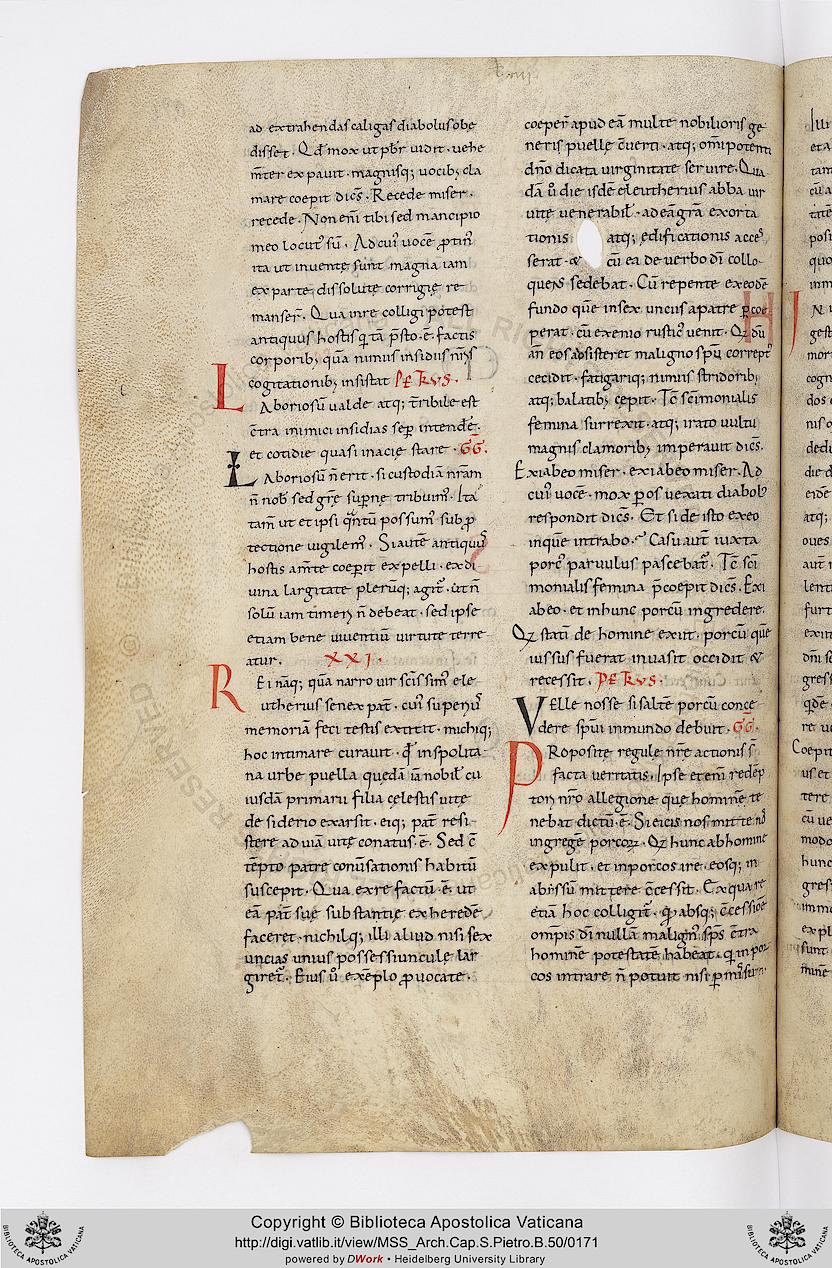 ad extrahendas caligas diabolus obe
disset. Qđ mox ut pbr̄ vidit. vehe
m̄ter expavit. magnisq; vocib; cla
mare coepit dic̄s. Recede miser.
recede. Non eni̅ tibi sed mancipio
meo locut' su̅. Ad cui' voce̅ ꝓtin'
ita ut invente sunt magna iam
ex parte dissolute corrigie re
manser̄. Qua in re colligi potest
antiquus hostis q' ta̅ p̄sto .e̅. factis
corporib; qua̅ nimiis insidiis nr̄is
cogitationib; insistat PETRVS.
Laboriosu̅ valde atq; t̄ribile est
c̄tra inimici insidias sep̄ intende̅.
et cotidie quasi in acie stare. GG.
Laboriosu̅ n̅ erit. si custodia̅ nr̄am
n̅ nob' sed gr̄e sup̄ne tribuim'. Ita
tam̅ ut et ipsi qntu̅ possum' sub p̱
tectione vigilem'. Si aute̅ antiquu'
hostis a m̄te coeperit expelli. ex di
vina largitate pleruq; agit'. ut n̅
solu̅ iam timeri n̅ debeat. sed ipse
etiam bene viventiu̅ virtute terre
atur. XXI.
Rei na̅q; qua̅ narro vir sc̄issim' ele
utherius senex pat̄. cui' superiu'
memoria̅ feci testis extitit. michiq;
hoc intimare curavit. qđ in spolita
na urbe puella queda̅ ia̅ nobil' cu
iusda̅ primarii filia celestis vite
desiderio exarsit. eiq; pat̄ resi
stere ad via̅ vite conatus .e̅. Sed c̄
te̅pto patre conv̄sationis habitu̅
suscepit. Qua ex re factu̅ .e̅. ut
ea̅ pat̄ sue substantie exherede̅
faceret. nichilq; illi aliud nisi sex
uncias unius possessiuncule lar
giret'. Eius u̅ exe̅plo ꝓvocate.
coeper̄ apud ea̅ multe nobilioris ge
neris puelle c̄verti. atq; om̄ipotenti
dn̄o dicata virginitate servire. Qua
da̅ u̅ die isde̅ eleutherius abba vir
vite venerabil'. ad ea̅ gr̄a exorta
tionis atq; edificationis acces
serat. & cu̅ ea de verbo dī collo
quens sedebat. Cu̅ repente ex eode̅
fundo que̅ in sex unciis a patre p̱ce
perat. cu̅ exenio rustic' venit. Qı du̅
an̅ eos adsisteret maligno sp̄u corrept'
cecidit. fatigariq; nimiis stridorib;
atq; balatib; cepit. Tc̅ sc̄imonialis
femina surrexit. atq; irato vultu
magnis clamorib; imperavit dic̄s.
Exi ab eo miser. exi ab eo miser. Ad
cui' voce̅. mox p̱ os vexati diabol'
respondit dic̄s. Et si de isto exeo
in que̅ intrabo. Casu aut̅ iuxta
porc' parvulus pascebat'. Tc̅ sc̄i
monialis femina p̄coepit dic̄s. Exi
ab eo. et in hunc porcu̅ ingredere.
Qı stati̅ de homine exiit. porcu̅ que̅
iussus fuerat invasit occidit &
recessit. PETRVS.
Velle nosse si salte̅ porcu̅ conce
dere sp̄ui inmundo debuit. GG.
Proposite regule nr̄e actionis s̄
facta veritatis. Ipse eteni̅ rede̅p
tori nr̄o a llegione que homine̅ te
nebat dictu̅ .e̅. Si eicis nos mitte nos
in grege̅ porcoꝝ. Qı hunc ab homine
expulit. et in porcos ire. eosq; in
abissu̅ mittere c̄cessit. Ex qua re
etia̅ hoc colligit'. qđ absq; c̄cessione
om̄pis dī nulla̅ malign' sp̄s c̄tra
homine̅ potestate̅ habeat. q' in por
cos intrare n̅ potuit nisi p̱missus.
Copyright © Biblioteca Apostolica Vaticana
http://digi.vatlib.it/view/MSS_Arch.Cap.S.Pietro.B.50/0171
powered by DWork • Heidelberg University Library